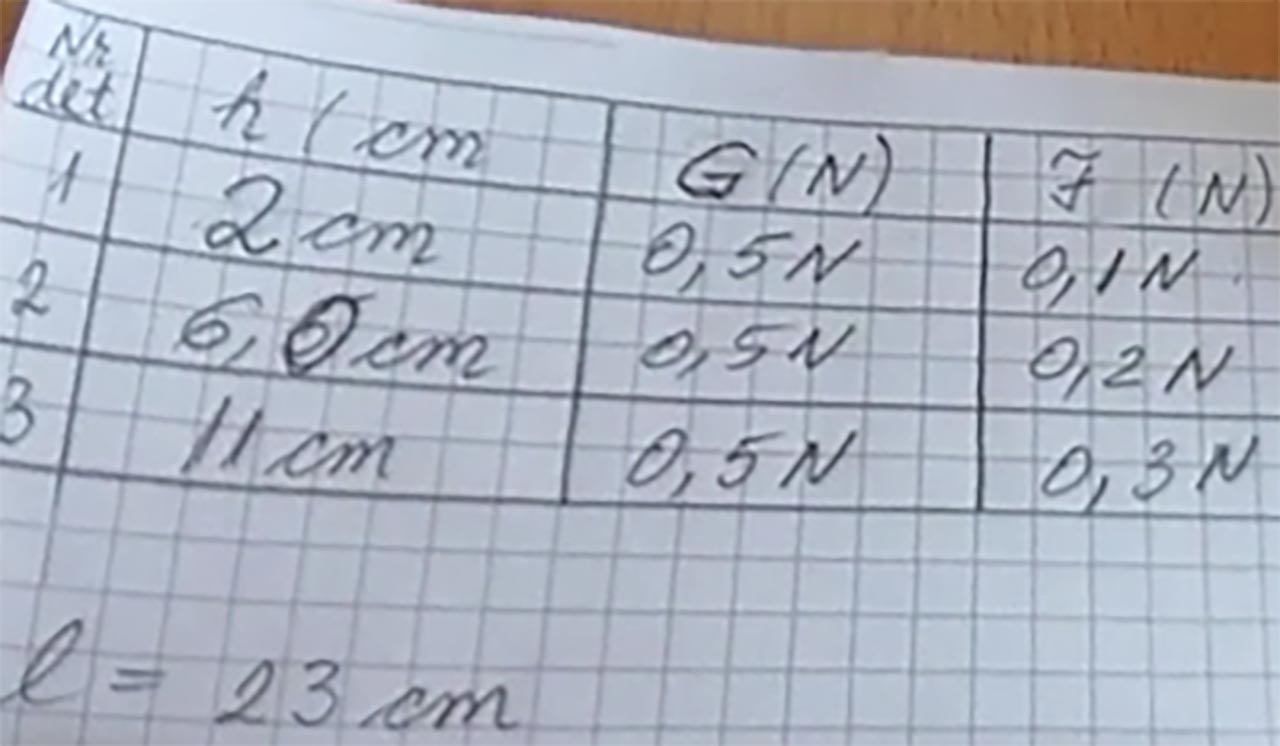 Nr det h (cm G (N) F (N)
1 2 cm 0,5 N 0,1 N
2 6,0 cm 0,5 N 0,2 N
3 11 cm 0,5 N 0,3 N
l = 23 cm